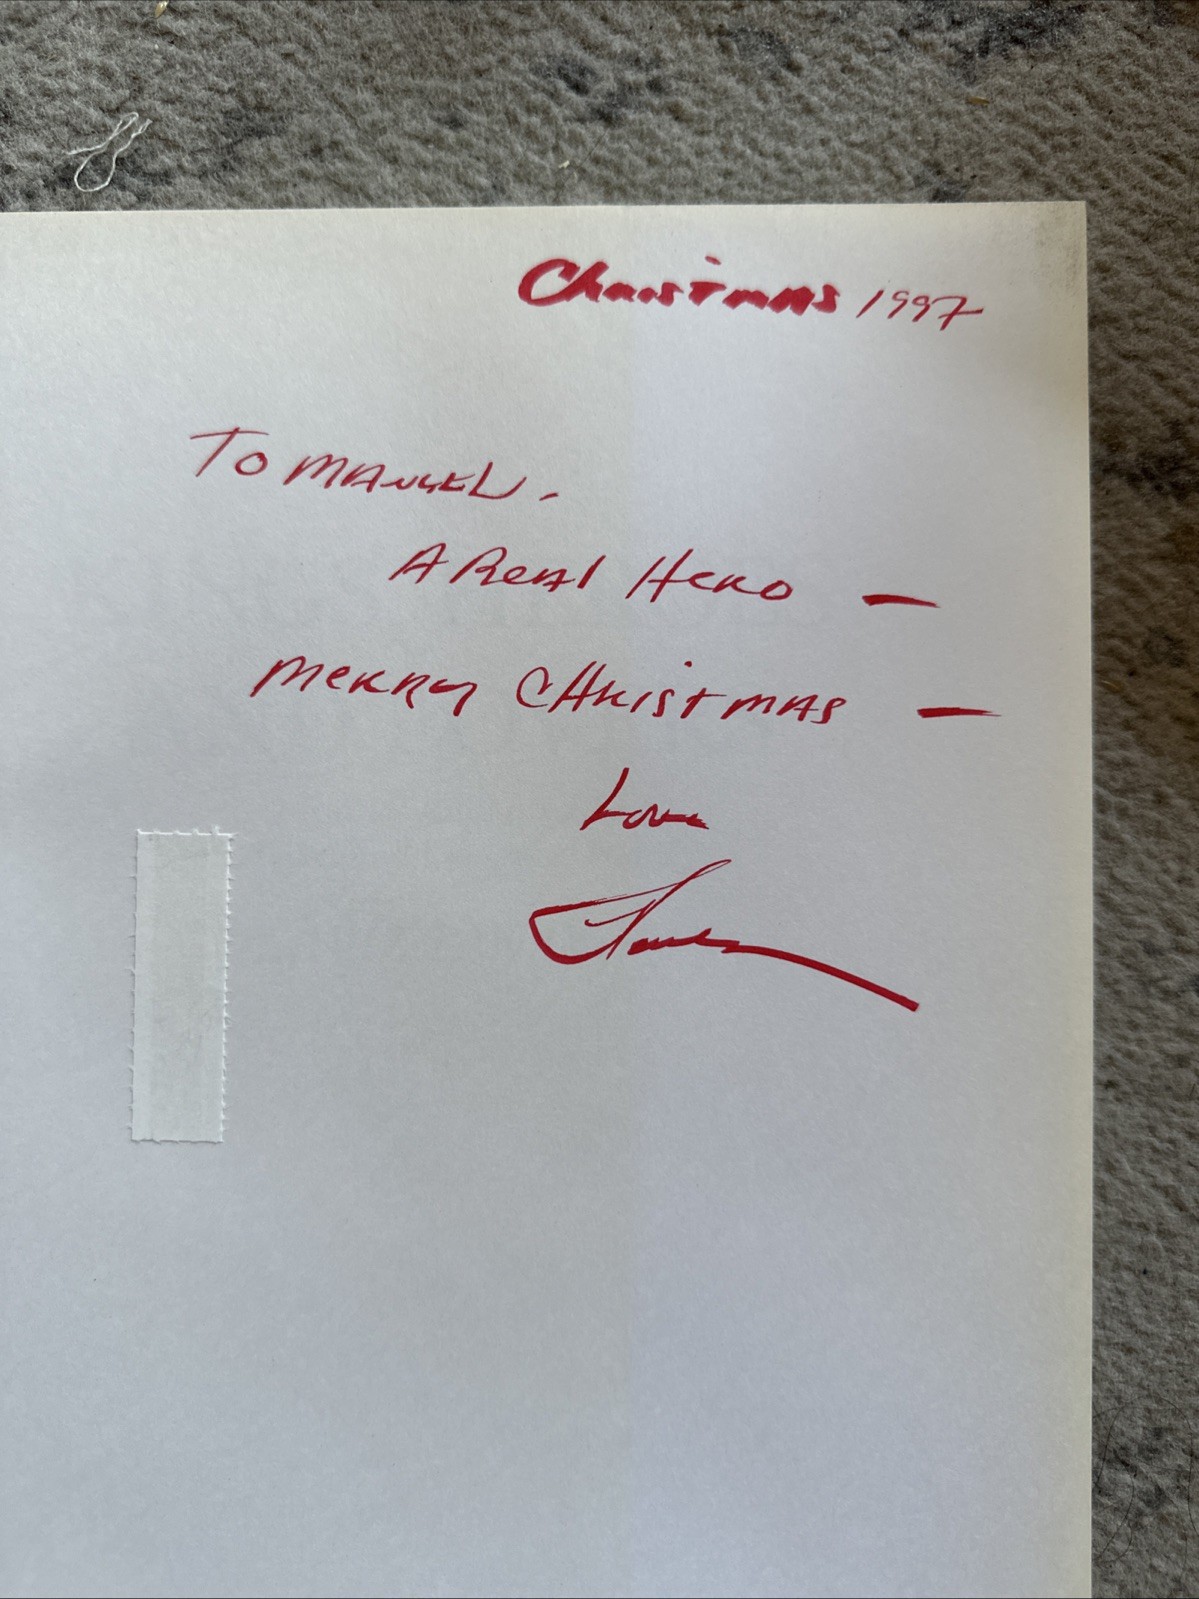 Christmas 1997
To MANUEL.
A Real Hero —
Merry CHristmas —
Love